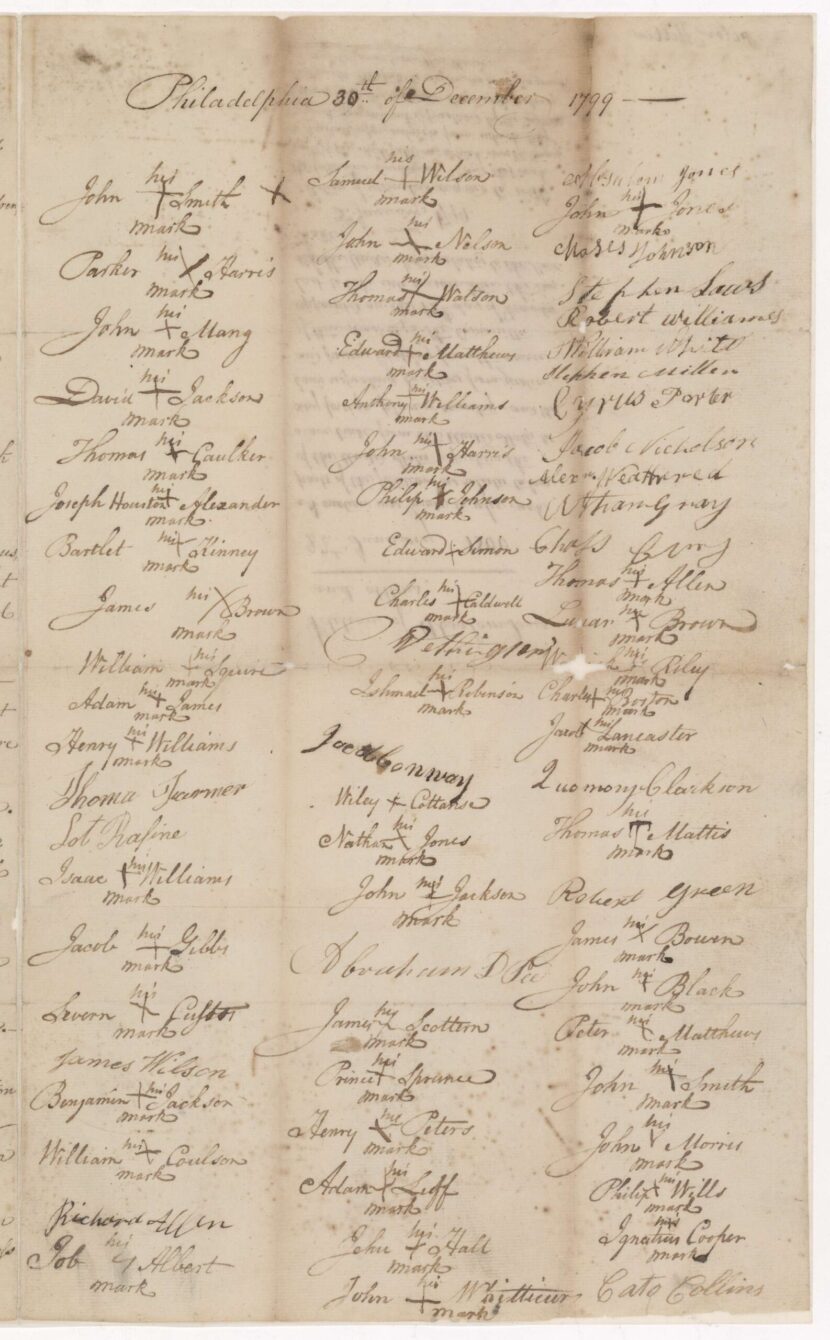 Philadelphia 30th of December 1799
John his Smith
mark
Parker his Harris
mark
John his Mang
mark
David his Jackson
mark
Thomas his Caulker
mark
Joseph Houston his Alexander
mark
Bartlet his Kinney
mark
James his Brown
mark
William his Squire
mark
Adam his James
mark
Henry his Williams
mark
Thoma Farmer
Lot Rafine
Isaac his Williams
mark
Jacob his Gibbs
mark
Levern his Custos
mark
James Wilson
Benjamin his Jackson
mark
William his Coulson
mark
Richard Allen
Job his Albert
mark
Samuel his Wilson
mark
John his Nelson
mark
Thomas his Watson
mark
Edward his Matthews
mark
Anthony his Williams
mark
John his Harris
mark
Philip his Johnson
mark
Edward Simon
Charles his Caldwell
mark
Ishmael his Robinson
mark
Conway
Wiley Cottanse
Nathan his Jones
mark
John his Jackson
mark
Abraham
James his Scottern
mark
Prince his Sprunce
mark
Henry his Peters
mark
Adam his Leff
mark
John his Hall
mark
John his Whitticur
mark
Absalom Jones
John his Jones
mark
Moses Johnson
Stephen Laws
Robert williames
William White
Stephen Miller
Cyrus Porter
Jacob Nicholson
Weathered
Gray
Thomas his Allen
mark
his Brown
mark
his Riley
mark
Charles his Boston
mark
Jacob his Lancaster
mark
Quomony Clarkson
his
Thomas Mattis
mark
Robert Green
James his Bowen
mark
John his Black
mark
Peter his Matthews
mark
John his Smith
mark
his
John Morris
mark
Philip his Wills
mark
his
Ignatius Cooper
mark
Cato Collins